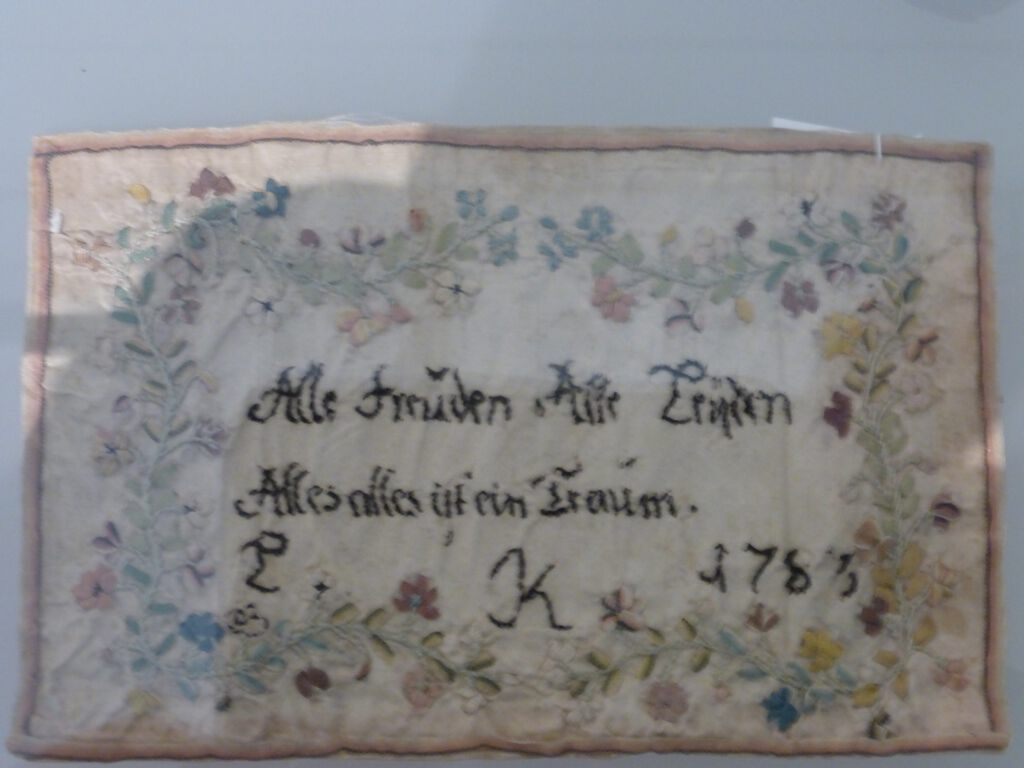 Alle Freuden Alle Leijden
Alles alles ist ein Traum.
L K 1783